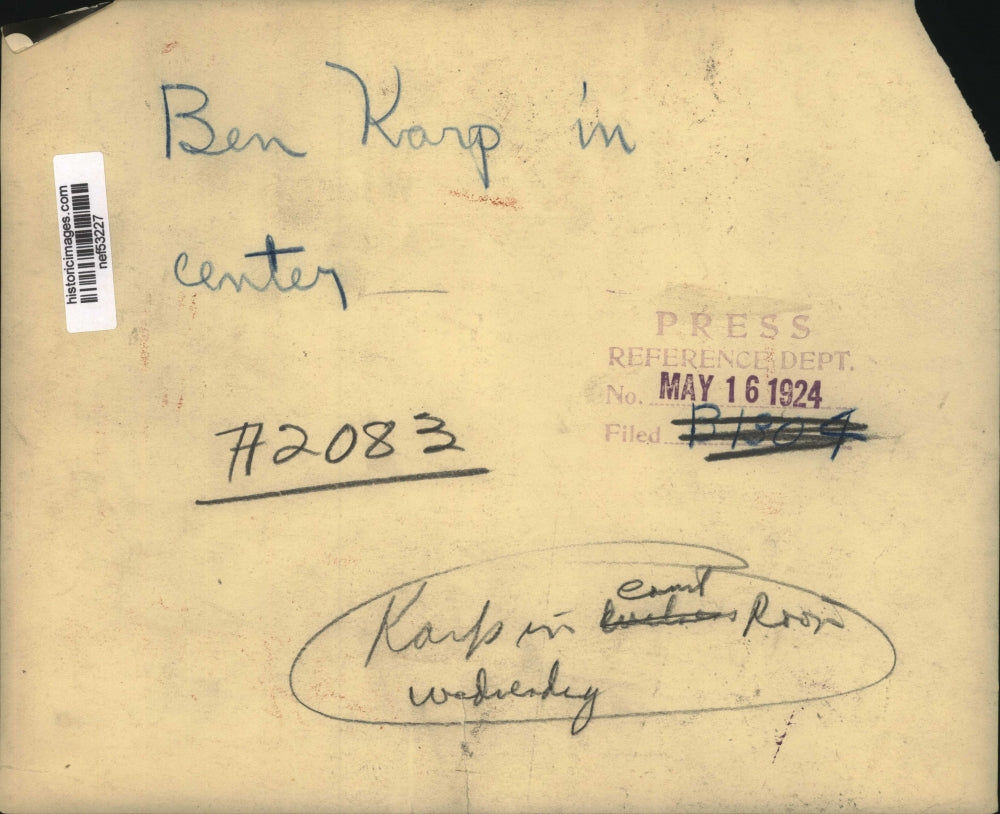 Ben Karp in
center
historicimages.com
nef53227
PRESS
REFERENCE DEPT.
No. MAY 16 1924
Filed B1804
A2083
court
Karp in Room
Wednesday